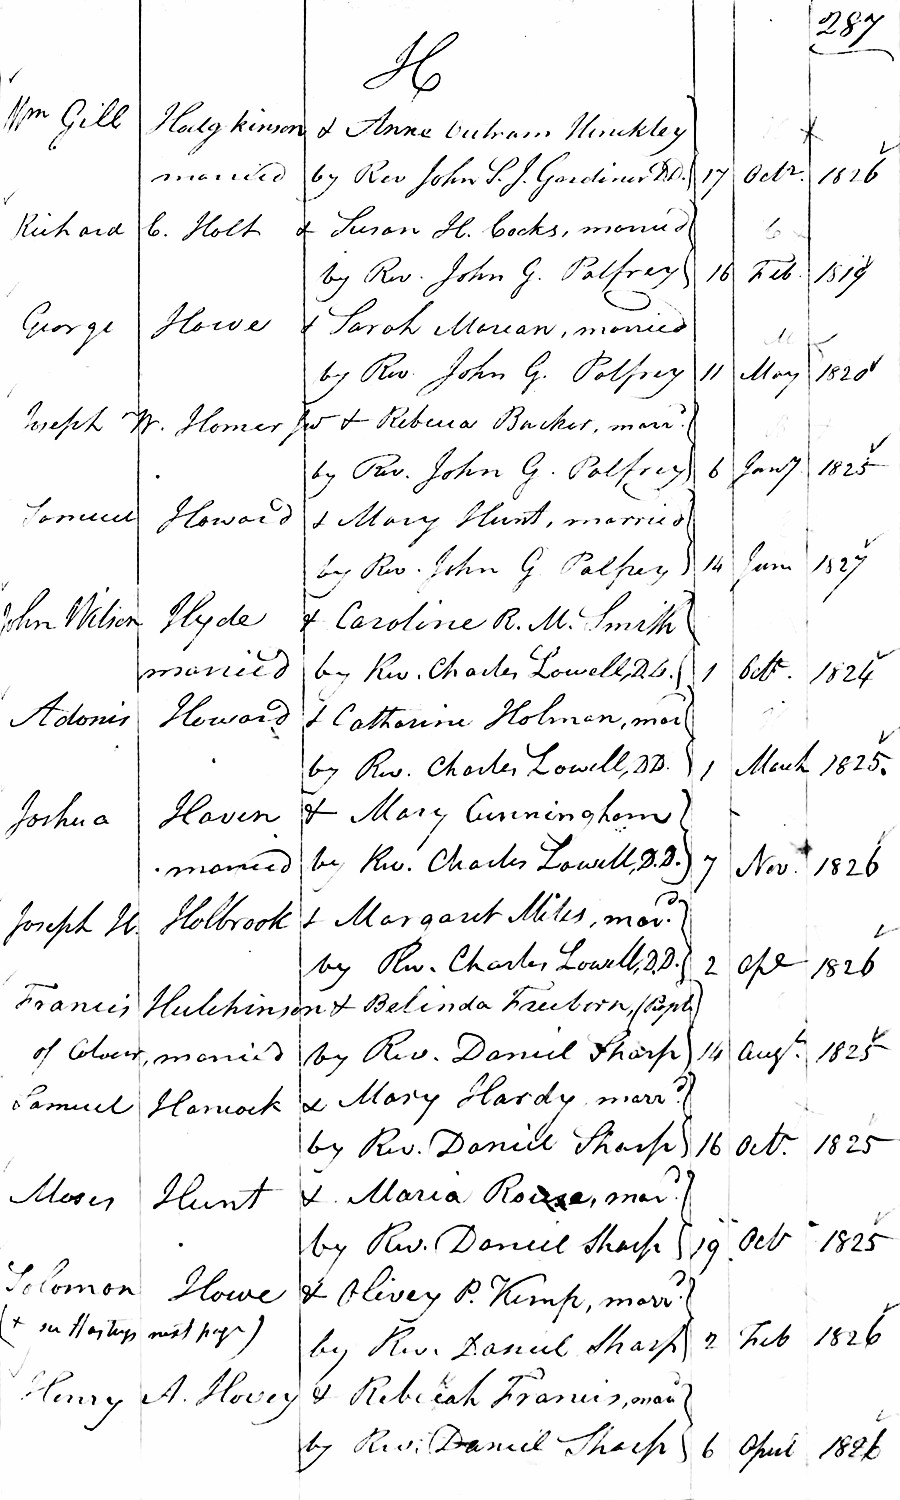 287
H
Wm Gill Hodgkinson & Anne Outram Hinckley
married by Rev John S. J. Gardiner D.D. 17 Octr. 1826
Richard C. Holt & Susan H. Cocks, married
by Rev. John G. Palfrey 16 Feb. 1819
George Howe & Sarah Moran, married
by Rev. John G. Palfrey 11 May 1820
Joseph W. Homer Jr & Rebecca Barker, marrd.
by Rev. John G. Palfrey 6 Jany 1825
Samuel Howard & Mary Hunt, married
by Rev. John G Palfrey 14 June 1827
John Wilson Hyde & Caroline R. M. Smith
married by Rev. Charles Lowell, D.D. 1 Octr. 1824
Adonis Howard & Catharine Holman, mard
by Rev. Charles Lowell, DD. 1 March 1825.
Joshua Haven & Mary Cunningham
married by Rev. Charles Lowell, D.D. 7 Nov. 1826
Joseph H. Holbrook & Margaret Miles, mard.
by Rev. Charles Lowell, D.D. 2 Apl 1826
Francis Hutchinson & Belinda Freeborn, (Peple
of Colour, married by Rev. Daniel Sharp 14 Augt. 1825
Samuel Hancock & Mary Hardy marrd.
by Rev. Daniel Sharp 16 Oct. 1825
Moses Hunt & Maria Rouse, mard.
by Rev. Daniel Sharp 19 Oct 1825
Solomon Howe & Olivey P. Kemp, marrd.
(+ see Hastings next page) by Rev. Daniel Sharp 2 Feb 1826
Henry A. Hovey & Rebecah Francis, mard
by Rev. Daniel Sharp 6 April 1826